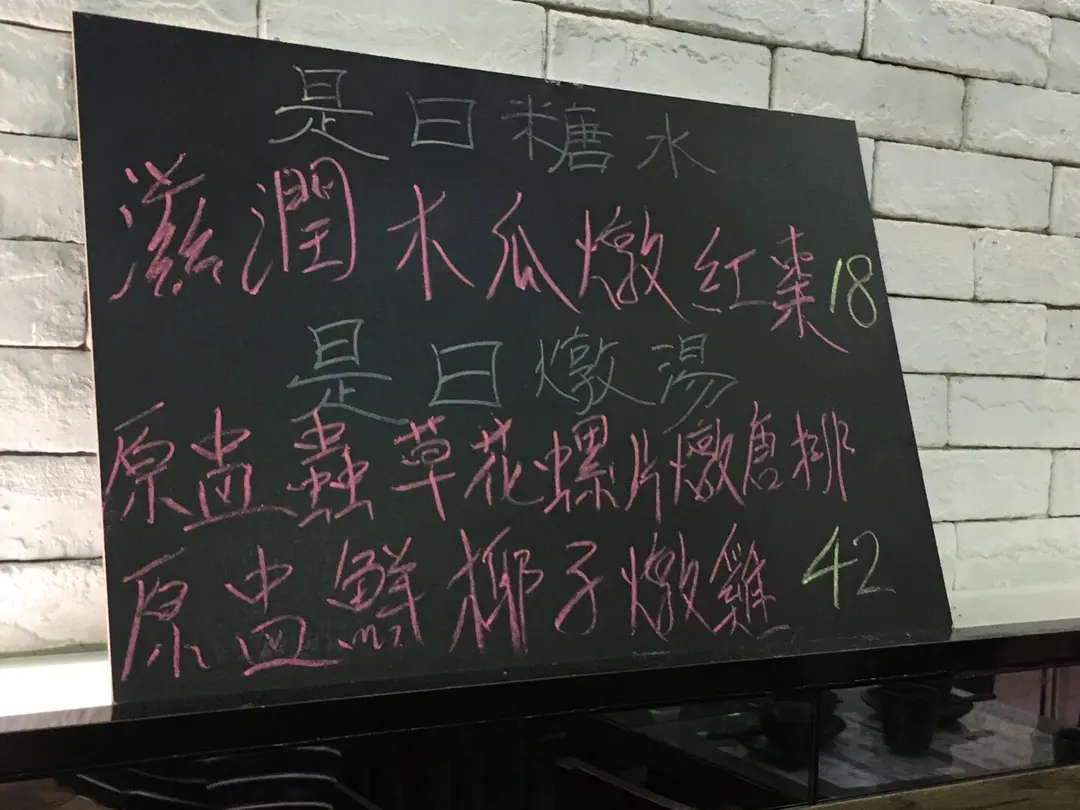 是日糖水
滋潤木瓜燉紅棗18
是日燉湯
原盅蟲草花螺片燉唐排
原盅鮮椰子燉雞 42